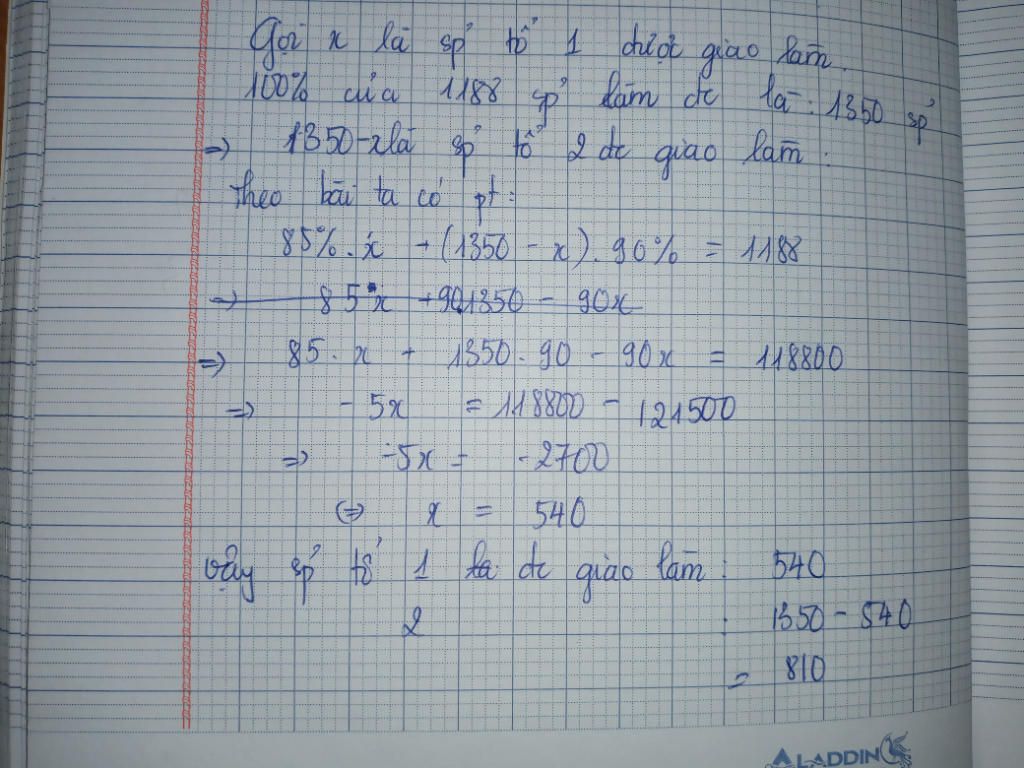 Gọi x là sp tổ 1 được giao làm.
100% của 1188 sp làm đc là: 1350 sp
=> 1350-x là sp tổ 2 đc giao làm.
theo bài ta có pt:
85%.x + (1350 - x).90% = 1188
=> 85.x +90.1350 - 90x
=> 85.x + 1350.90 - 90x = 118800
=> -5x = 118800 - 121500
=> -5x = -2700
<=> x = 540
Vậy sp tổ 1 đc giao làm: 540
2 : 1350 - 540
= 810
ALADDIN